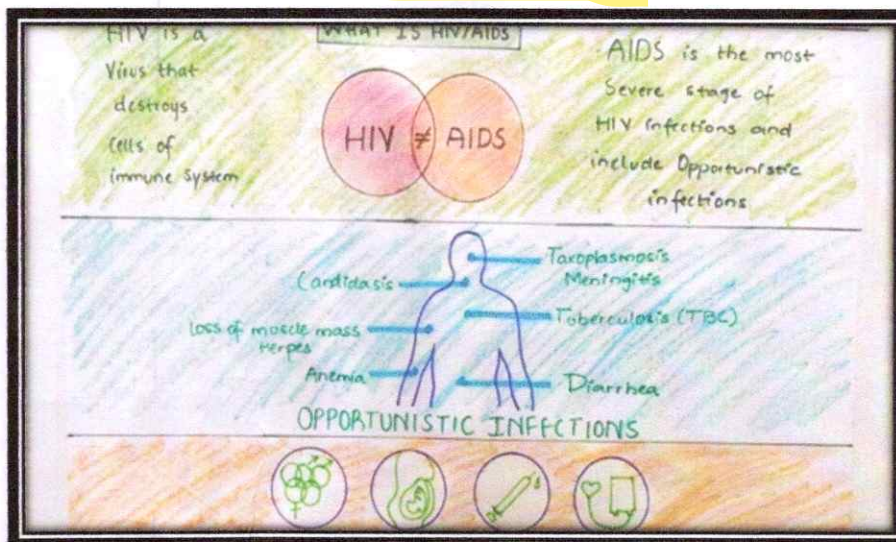 HIV is a
Virus that
destroys
Cells of
immune System
WHAT IS HIV/AIDS
HIV ≠ AIDS
AIDS is the most
Severe stage of
HIV infections and
include Opportunistic
infections
Candidasis
Loss of muscle mass
Herpes
Anemia
Taxoplasmosis
Meningitis
Tuberculosis (TBC)
Diarrhea
OPPORTUNISTIC INFECTIONS